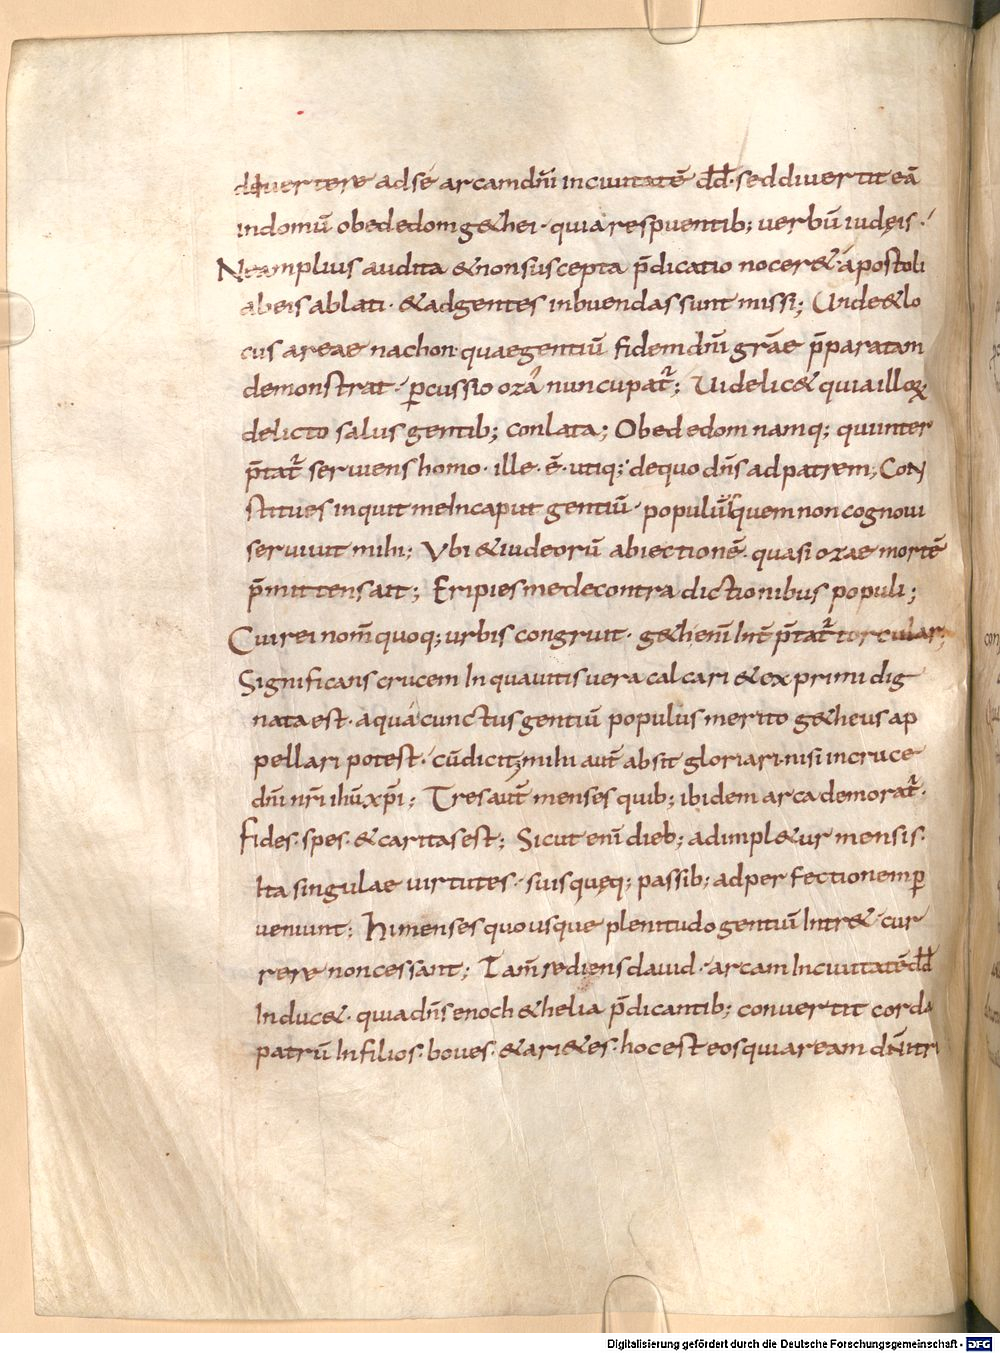 divertere ad se arcam dn̄i in civitatē dd̄. sed divertit eā
in domū obededom gethei · quia respuentib; verbū iudęis ·
Ne amplius audita & non suscepta p̄dicatio nocer& · apostoli
ab eis ablati · & ad gentes inbuendas sunt missi; Unde & lo
cus areae nachon · quae gentiū fidem dn̄i grāe p̄paratam
demonstrat · ꝑcussio oza nuncupat᷑; Uidelic& quia illoꝝ
delicto salus gentib; conlata; Obededom namq; qui inter
p̄tat᷑ serviens homo · ille · ē · utiq; de quo dn̄s ad patrem; Con
stitues inquit me In caput gentiū · populus quem non cognovi
serviuit mihi; Vbi & iudeorū abiectionē · quasi ozae mortē
p̄mittens ait; Eripies me de contradictionibus populi;
Cui rei nom̄ quoq; urbis congruit · g&h enim̄ Int̄p̄tat᷑ torcular;
Significans crucem In qua vitis vera calcari & exprimi dig
nata est · a qua cunctus gentiū populus merito getheus ap
pellari potest · cū dicit; mihi aut̄ absit gloriari · nisi in cruce
dn̄i nr̄i ihū xp̄i; Tres aut̄ menses quib; ibidem arca demorat᷑ ·
fides · spes · & caritas est; Sicut eni dieb; adimpl&ur mensis ·
Ita singulae virtutes · suis quęq; passib; ad perfectionem ꝑ
veniunt; Hi menses quo usque plenitudo gentiū Intr& · cur
rere non cessant; Tam̄ rediens david · arcam In civitatē dd̄
Induc& · quia dn̄s enoch & helia p̄dicantib; convertit corda
patrū In filios · boves · & ari&es · hoc est eos qui aream dn̄i tri
Digitalisierung gefördert durch die Deutsche Forschungsgemeinschaft - DFG